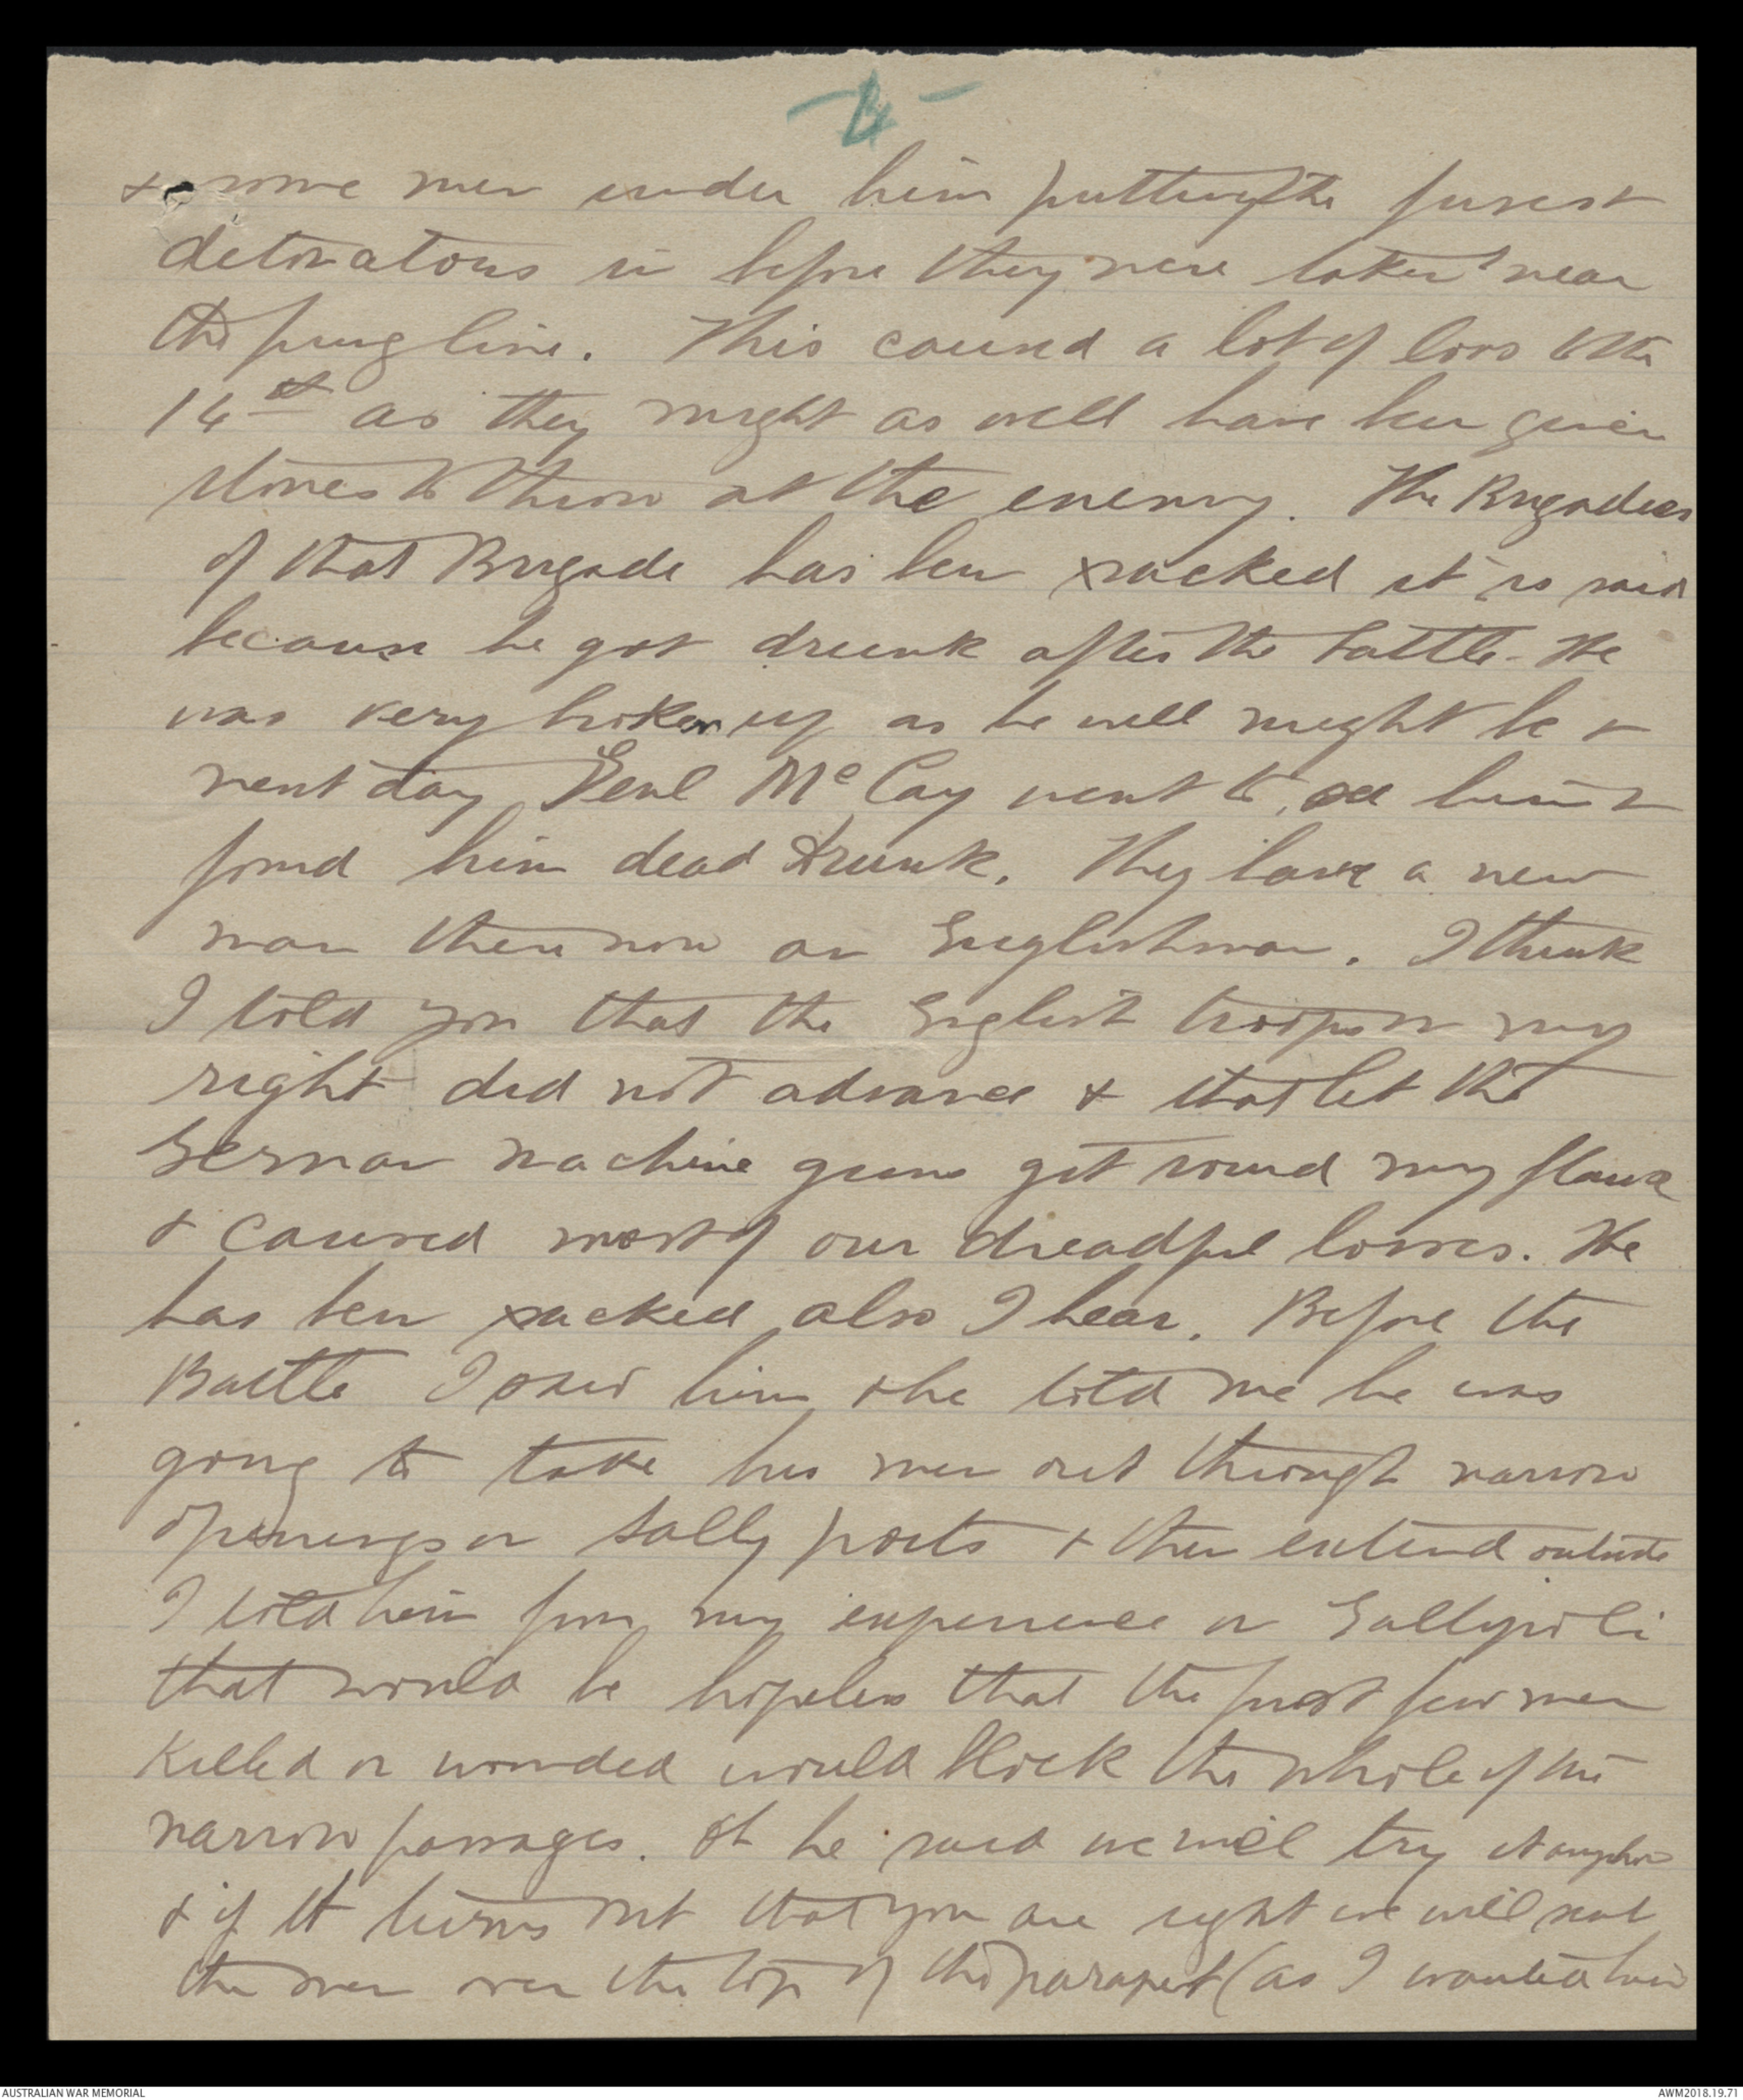 -4-
& some men under him putting the fuses &
detonators in before they were taken near
the firing line. This caused a lot of loss to the
14th as they might as well have been given
stones to throw at the enemy. The Brigadier
of that Brigade has been sacked it is said
because he got drunk after the battle - He
was very broken up as he well might be &
next day Genl McCay went to see him &
found him dead drunk. They have a new
man there now an Englishman. I think
I told you that the English troops on my
right did not advance & that let the
German machine guns get round my flank
& caused most of our dreadful losses. He
has been sacked also I hear. Before the
Battle I saw him & he told me he was
going to take his men out through narrow
openings or sally ports & then extend outside
I told him from my experience on Gallipoli
that would be hopeless that the first few men
killed or wounded would block the whole of the
narrow passages. Oh he said we will try it anyhow
& if it turns out that you are right we will send
the men over the top of the parapet (as I wanted him
AUSTRALIAN WAR MEMORIAL
AWM2018.19.71